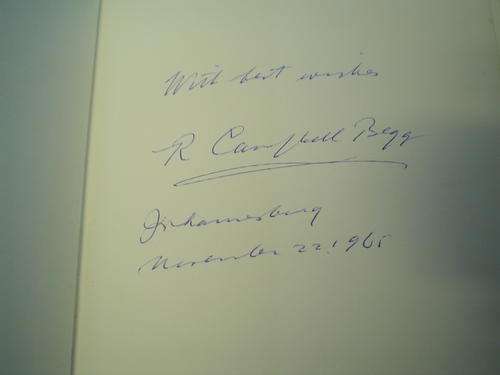 With best wishes
R Campbell Begg
Johannesburg
November 22. 1965